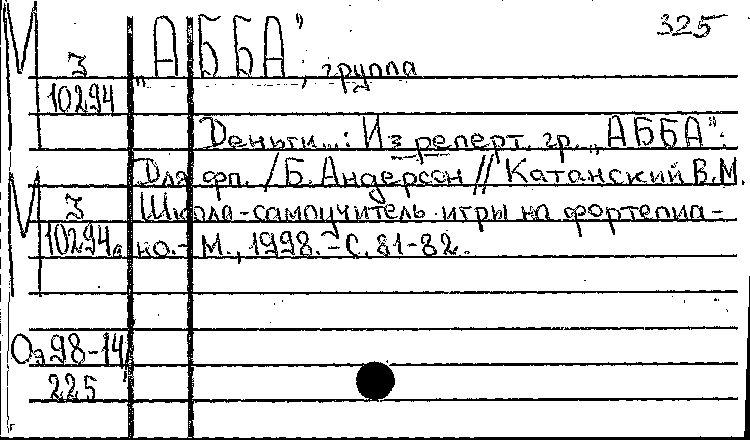 325
М З „АББА", группа
10294
Деньги...: Из реперт. гр. „АББА":
Для фп. / Б. Андерсон // Катанский В.М.
М З Школа-самоучитель игры на фортепиа-
10294а но. - М., 1998. - С. 81-82.
Оэ98-14/
225